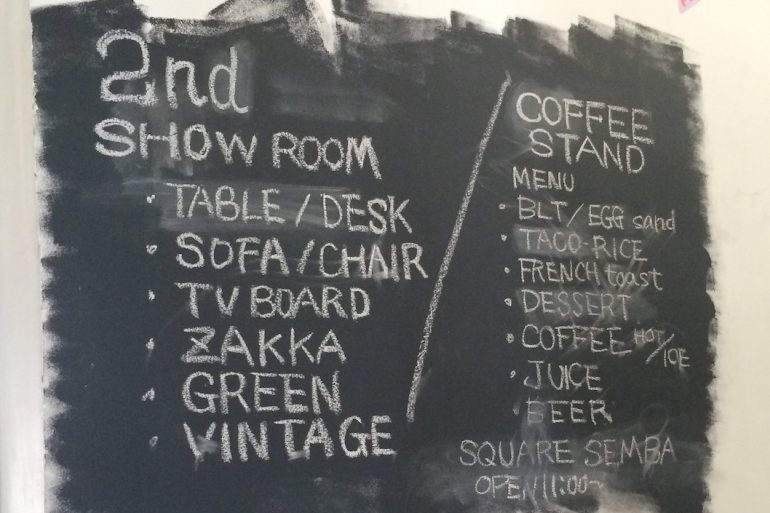 2nd
SHOW ROOM
・TABLE/DESK
・SOFA/CHAIR
・TV BOARD
・ZAKKA
・GREEN
・VINTAGE
COFFEE
STAND
MENU
・BLT/EGG sand
・TACO-RICE
・FRENCH toast
・DESSERT
・COFFEE HOT/ICE
・JUICE
・BEER
SQUARE SEMBA
OPEN 11:00~